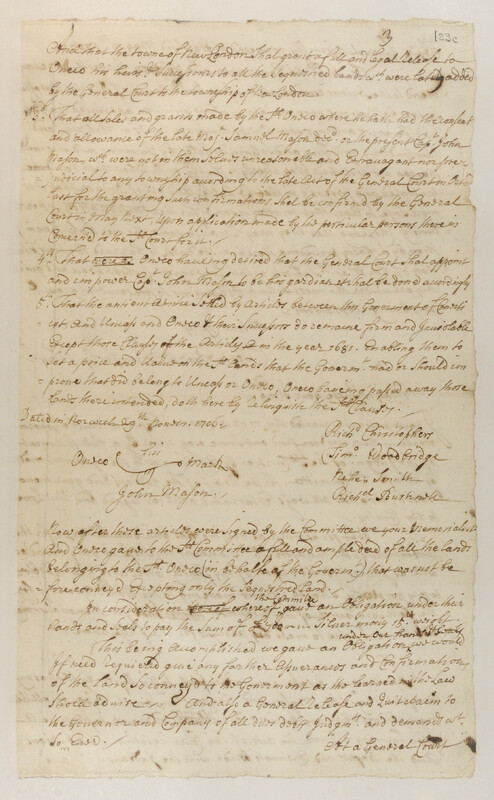 3
123c
And that the towne of New London Shal grant a full and legal Release to
Oneco his heirs & Successors to all the Sequestred lands wch were lately added
by the General Court to the township of New London
3d That all Sales and grants made by the sd Oneco where he hath had the consent
and allowance of the late Majr Samuel Mason decd or the present Capt John
Mason, wch were not in them Selves unreasonable and Extravagant nor pre-
judicial to any township according to the late Act of the General Court in Octor
last for the granting such confirmations Shal be confirmed by the General
Court in May next upon application made by the perticular persons therein
Concernd to the sd Court for it
4th That Oneco haveing desired that the General Court Shal appoint
and impower Capt John Mason to be his gardian it shal be done accordingly
5th That the antient Setled by Articles between this Government of Conecti
cut, And Uncass and Oneco & their Successors do remaine firm and Inviolable
Except those Clauses of the Articles in the year 1681. Enabling them to
Set a price and value on the sd Lands that the Governmt had or Should im
prove that did belong to Uncass or Oneco, Oneco haveing passd away those
lands there intended, doth hereby Relinquish the sd Clauses
Dated in Norwich 29th 1706.
Richd Christophers
Oneco his Mark
Timo Woodbridge
Nehe: Smith
John Mason
Richd Bushnell
Now after these articles were Signed by the Committee we your Memorialist
And Oneco gave to the sd Committee a full and ample deed of all the lands
belonging to the sd Oneco (in behalfe of the Governmt) that was not be
fore conveyd Excepting only the Sequestred Land.
In consideration whereof the Committee gave an Obligation under their
hands and Seals to pay the Sum of Silver mony 15d weight
This being Accomplished we gave an Obligation under our hands & Seals we would
if need Required give any farther Assurances and Confirmation
of the Land So conveyd to the Goverment as the Learned in the Law
Should advise And also a General Release and Quitclaim to
the Governor and Company of all dues debts Judgmts and demands wt
So Ever.
At a General Court